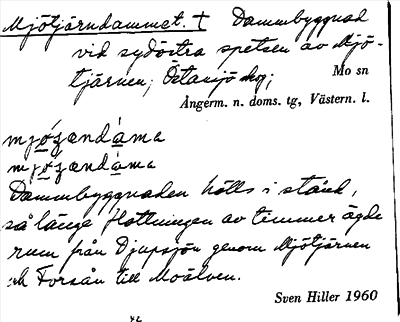 Mjötjärndammet. † Dammbyggnad
vid sydöstra spetsen av Mjö-
tjärnen, Östansjö skog;
Mo sn
Ångerm. n. doms. tg, Västern. l.
mjø̱ʒændá̱ma
mjø̱ʒændá̱ma
Dammbyggnaden hölls i stånd,
så länge flottningen av timmer ägde
rum från Djupsjön genom Mjötjärnen
och Forsån till Moälven.
Sven Hiller 1960